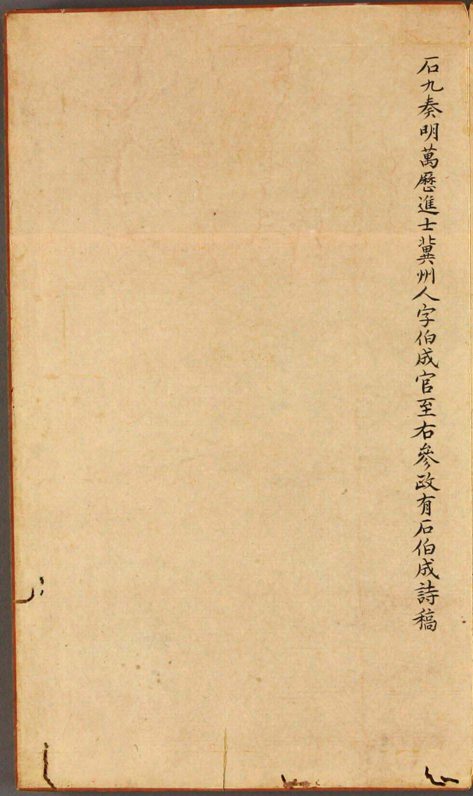 石九奏明萬曆進士冀州人字伯成官至右參政有石伯成詩稿